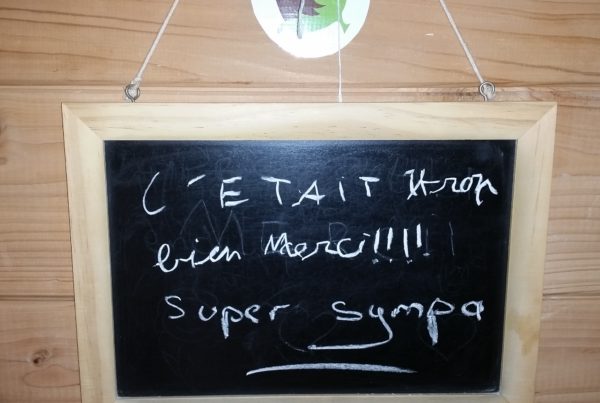 C'ETAIT trop
bien Merci!!!!!
Super Sympa